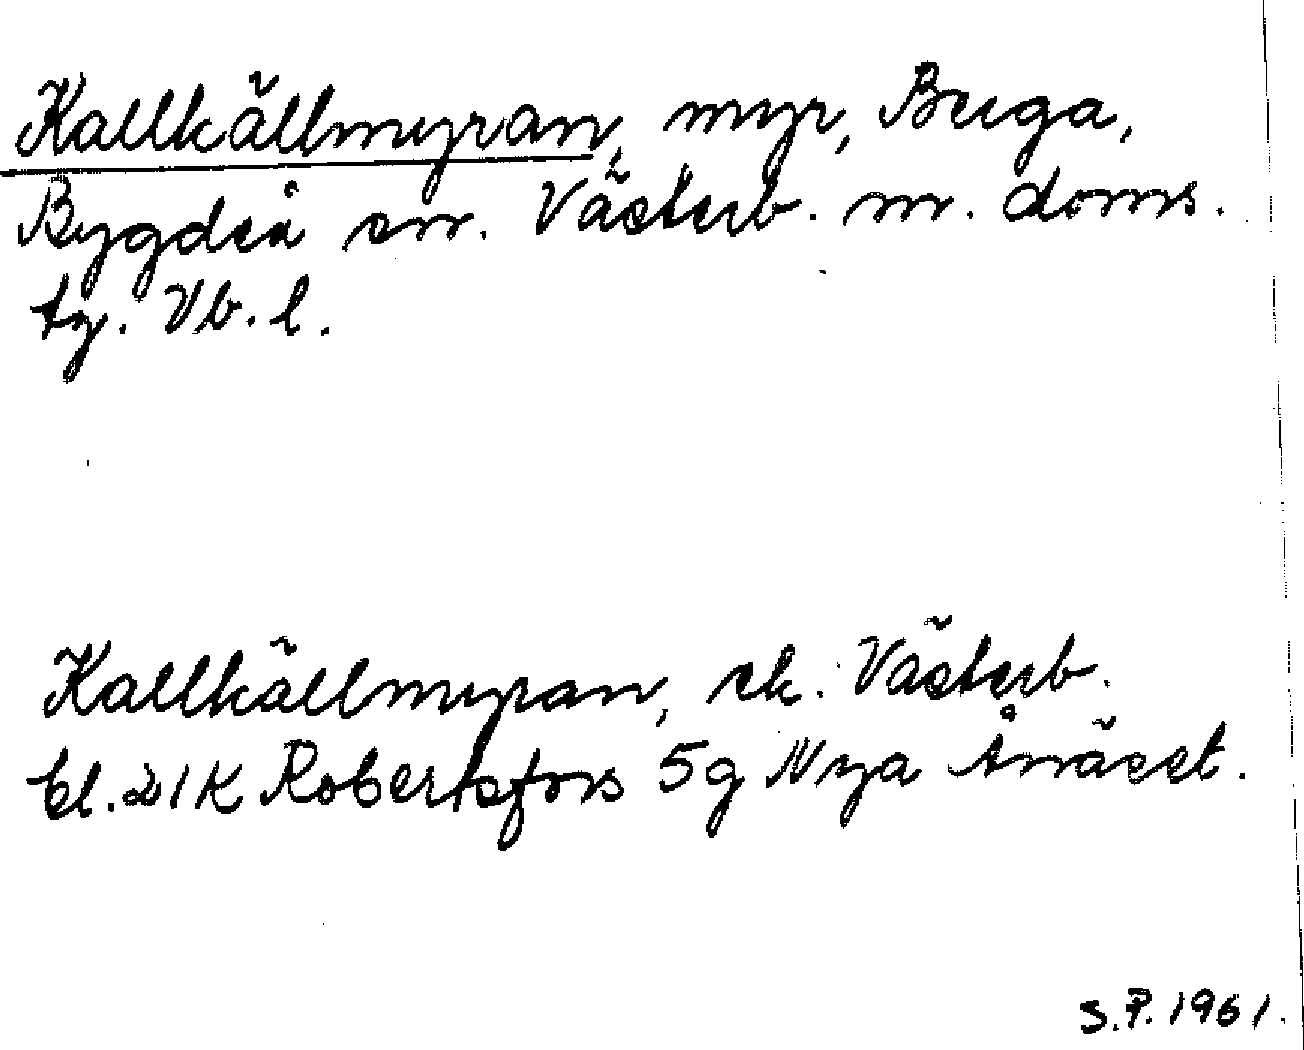 Kallkällmyran, myr, Bruga,
Bygdeå sn. Västerb. m. doms.
tg. Vb. l.
Kallkällmyran, ek. Västerb.
bl. 21K Robertsfors 5g Nya Ånäset.
S.P. 1961.